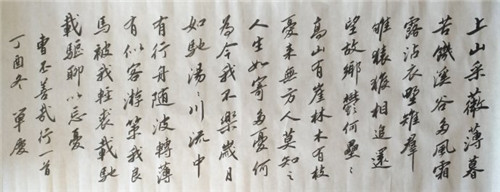 上山采薇薄暮
苦饑溪谷多風霜
露沾衣野雉群
雊猿猴相追還
望故鄉鬱何壘々
高山有崖林木有枝
憂來無方人莫知之
人生如寄多憂何
為今我不樂歲月
如馳湯々川流中
有行舟隨波轉薄
有似客游策我良
馬被我輕裘載馳
載驅聊以忘憂
曹丕善哉行一首
丁酉冬 軍慶